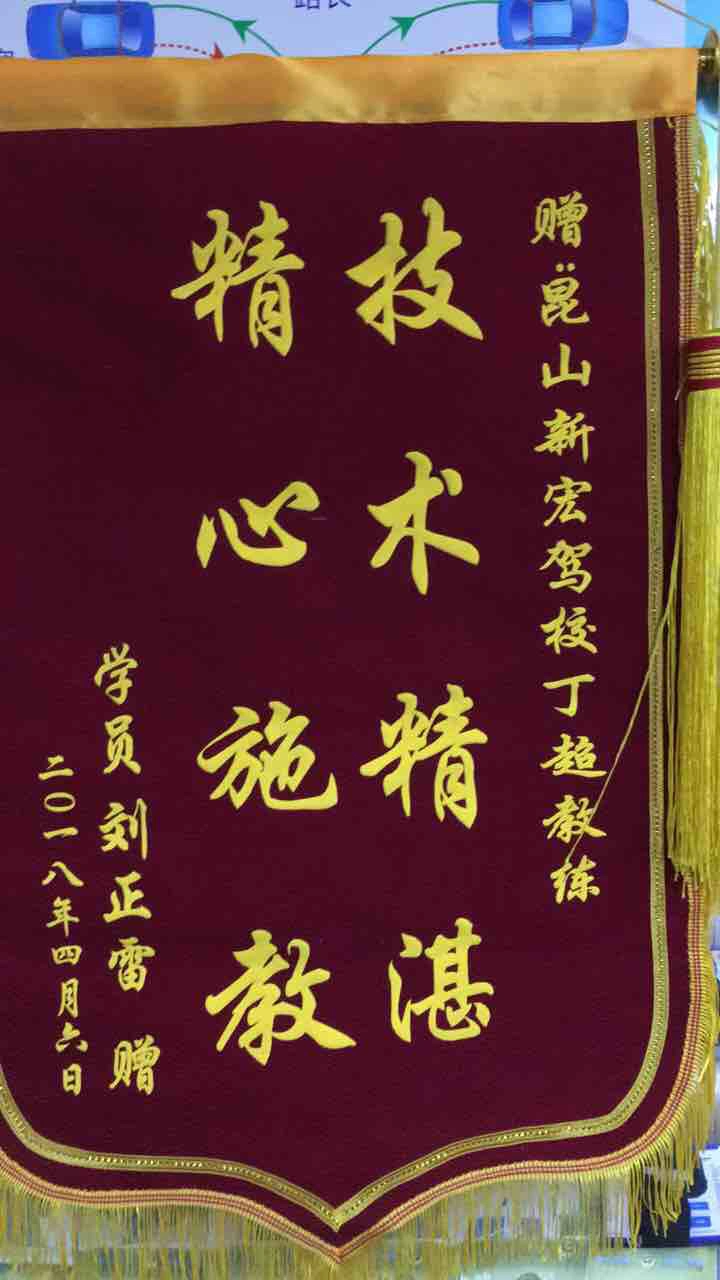 赠:昆山新宏驾校丁超教练
技术精湛
精心施教
学员刘正雷 赠
二〇一八年四月六日